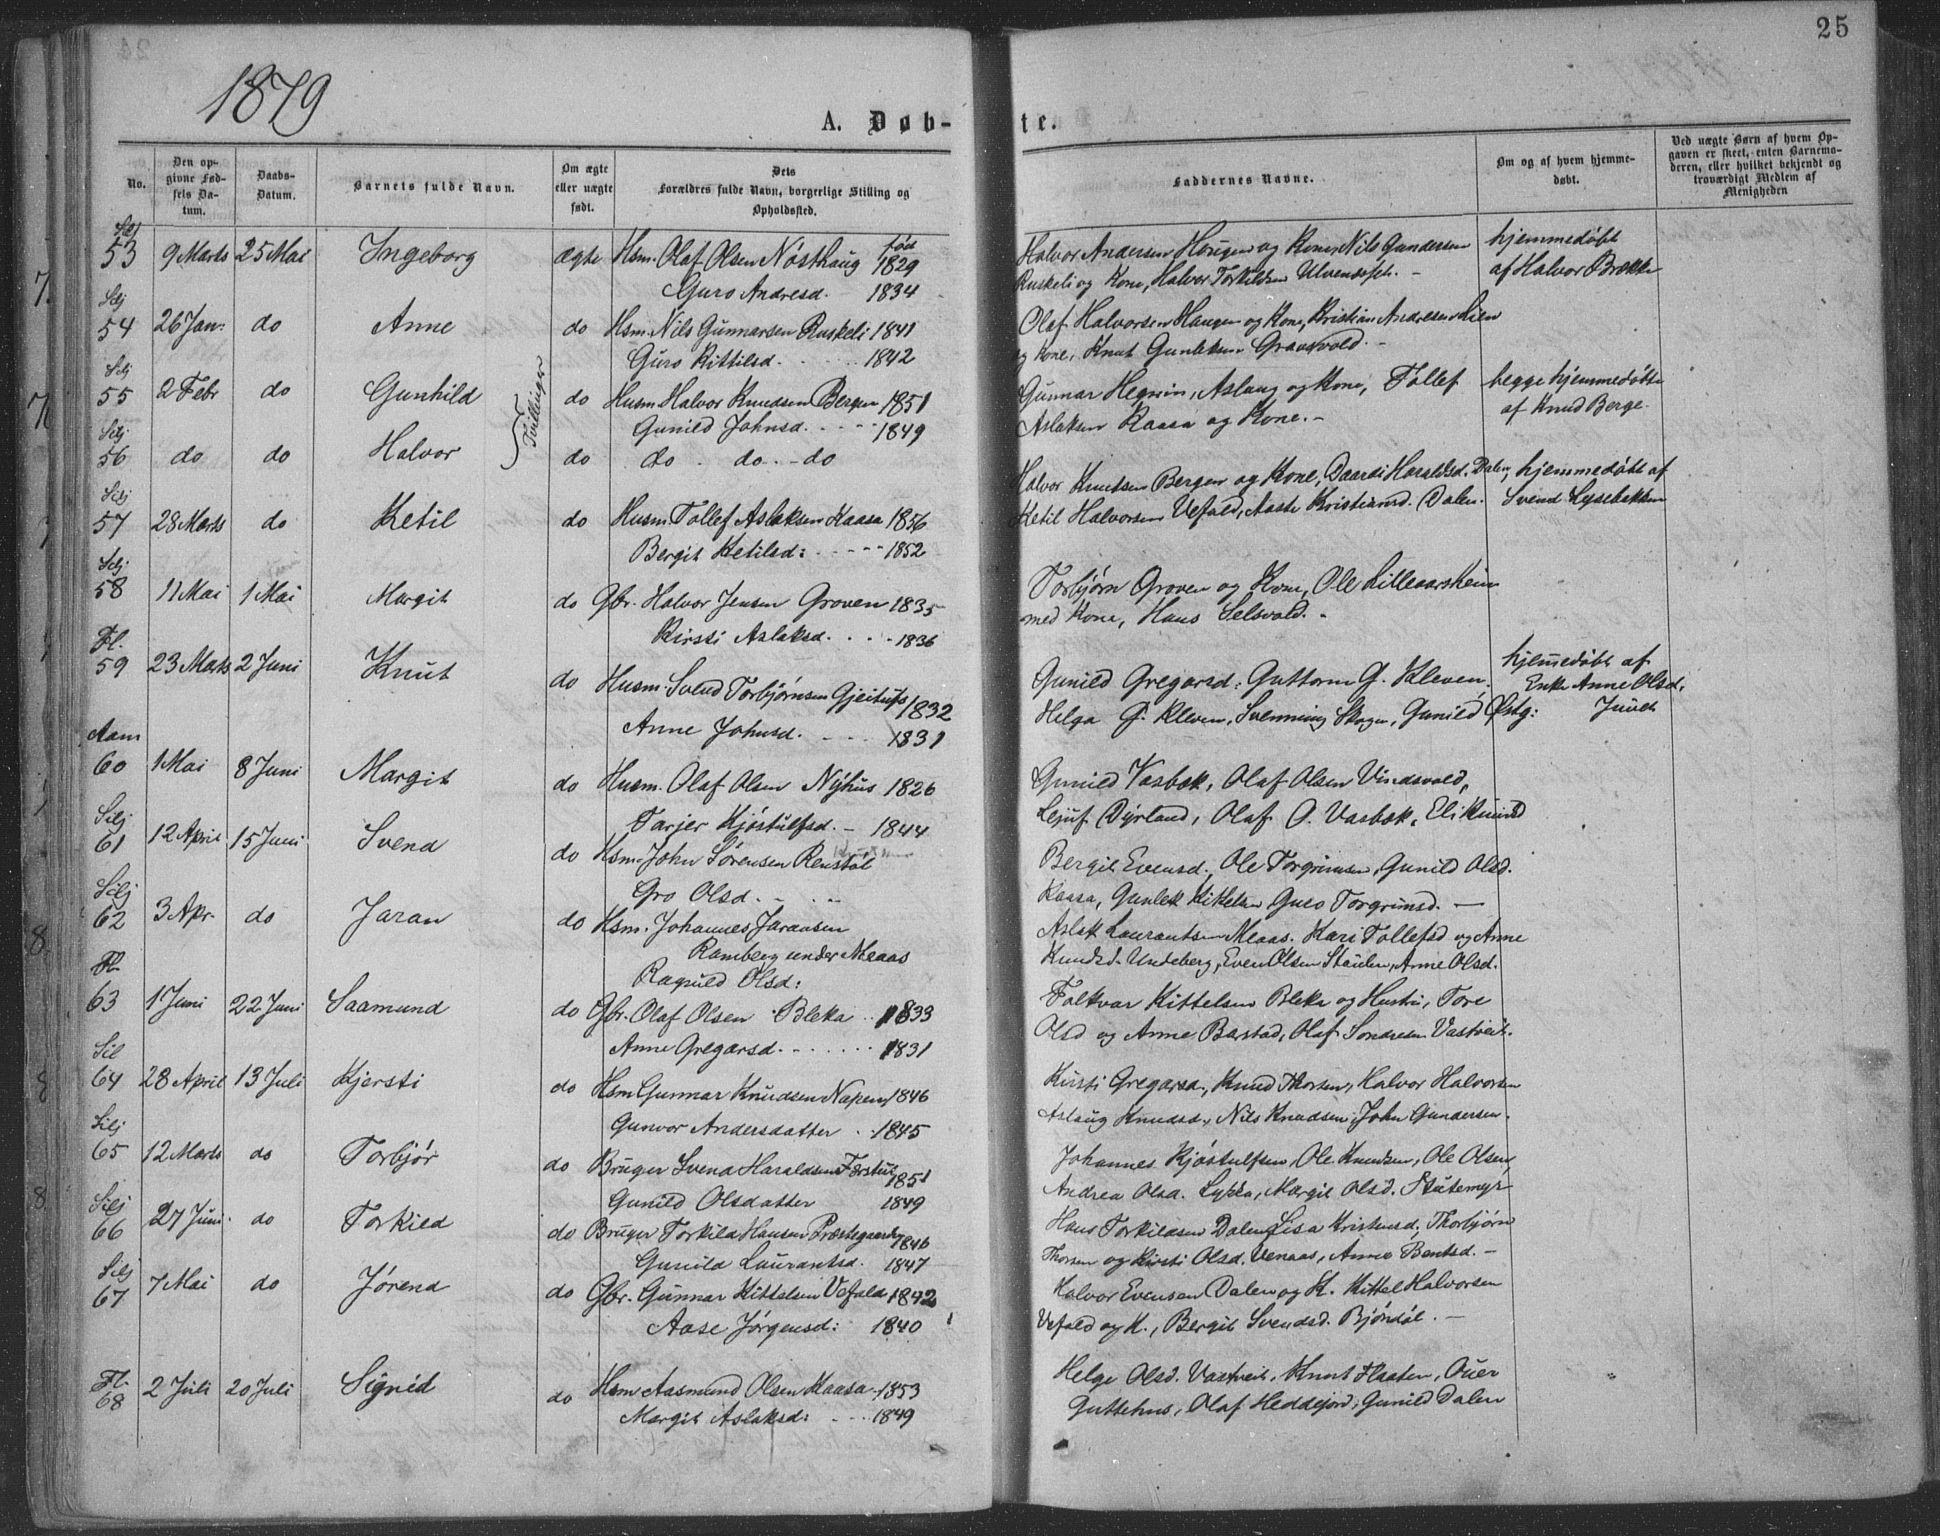 25
1879
A. Døb-
te.
No.
Den op-
givne Fød-
sels Da-
tum.
Daabs-
Datum.
Barnets fulde Navn.
Om ægte
eller uægte
født.
Dets
Forældres fulde Navn, borgerlige Stilling og
Opholdssted.
Faddernes Navne.
Om og af hvem hjemme-
døbt.
Ved uægte Børn af hvem Op-
gaven er skeet, enten Barnemo-
deren, eller hvilket bekjendt og
troværdigt Medlem af
Menigheden
Silj
53 9 Marts 25 Mai Ingeborg ægte Hsm. Olaf Olsen Nøsthaug født 1829
Guro Andresd. 1834
Halvor Andersen Haugen og Kone, Nils Gundersen
Ruskeli og Kone, Halvor Torkildsen
hjemmedøbt
af Halvor Brække
Silj
54 26 Jan: do Anne do Hsm. Nils Gunnarsen Ruskeli 1841
Guro Kittilsd. 1842
Olaf Halvorsen Haugen og Kone, Kristian Andresen Lien
og Kone, Knut Gunleksen Graavold. -
Silj
55 2 Febr do Gunhild Tvillinger do Husm. Halvor Knudsen Bergen 1851
Gunild Johnsd. 1849
Gunnar Hegnin, Aslaug og Kone, Tollef
Aslaksen Kaasa og Kone. -
begge hjemmedøbte
af Knud Berge.
Silj
56 do do Halvor do do. do. - do
Halvor Knutsen Bergen og Kone, Daardi Haraldsd. Dalen,
Ketil Halvorsen Vefald, Aaste Kristiansd. Dalen.
hjemmedøbt af
Svend Lysebakken
Silj
57 28 Marts do Ketil do Husm. Tollef Aslaksen Kaasa 1856
Bergit Ketilsd: 1852
Silj
58 11 Mai 1 Mai Margit do Gbr. Halvor Jensen Groven 1835
Kirsti Aslaksd. 1836
Torbjørn Groven og Kone, Ole Lilleaarsheim
med Kone, Hans Selsvold. -
Fl.
59 23 Marts 2 Juni Knut do Husm. Svend Torbjørnsen 1832
Anne Johnsd. 1831
Gunild Gregarsd: Guttorm G. Kleven.
Helga G. Kleven, Svenning Skogen, Gunild Østg:
hjemmedøbt af
Enke Anne Olsd.
Juvet
Aam
60 1 Mai 8 Juni Margit do Husm. Olaf Olsen Nyhus 1826
Tarjer Kjøstulfsd. - 1844
Gunild Vasbæk, Olaf Olsen Vindsvold,
Ljuf Dyrland, Olaf O. Vasbæk, Eli
Silj
61 12 April 15 Juni Svend do Hsm. John Sørensen Renstøl
Gro Olsd.
Bergit Evensd., Ole Torgrimsen, Gunild Olsd.
Kaasa, Gunlek Kittelsen Guro Torgrimsd. -
Silj
62 3 Apr. do Jaran do Hsm. Johannes Jaransen
Ramberg under Meaas
Ragnild Olsd:
Aslak Laurantsen Meaas. Kari Tollefsd og Anne
Knudsd. Undeberg, Even Olsen Staulen, Anne Olsd.
Fl.
63 1 Juni 22 Juni Saamund do Gbr. Olaf Olsen Bleka 1833
Anne Gregarsd. 1831
Folkvar Kittelsen Bleka og Hustru, Tore
Olsd og Anne Barstad, Olaf Sondresen Vastveit.
Sil
64 28 April 13 Juli Kjersti do Hsm Gunnar Knudsen Napen 1846
Gunvor Andersdatter 1845
Kirsti Gregarsd., Knud Thorsen, Halvor Halvorsen
Aslaug Knudsd., Nils Knudsen, John Gundersen.
Silj
65 12 Marts do Torbjør do Bruger Svend Haraldsen 1851
Gunild Olsdatter 1849
Johannes Kjøstulfsen, Ole Knudsen, Ole Olsen,
Andrea Olsd. Lykka, Margit Olsd. Stutemyr
Silj
66 27 Juni do Torkild do Bruger Torkild Hansen Præstegaarden 1846
Gunild Laurantsd. 1847
Hans Torkildsen Dalen, Lisa Kristensd, Thorbjørn
Thorsen og Kirsti Olsd. Venaas, Anne Bentsd. -
Silj
67 7 Mai do Jørend do Gbr. Gunnar Kittelsen Vefald 1842
Aase Jørgensd: 1840
Halvor Evensen Dalen og K. Kittel Halvorsen
Vefald og K., Bergit Svendsd. Bjøndøl. -
Fl.
68 2 Juli 20 Juli Signid do Hsm Aasmund Olsen Kaasa 1853
Margit Aslaksd: 1849
Helge Olsd. Vastveit, Knut Flaaten, Ouer
Guttehus, Olaf Heddejord, Gunild Dalen